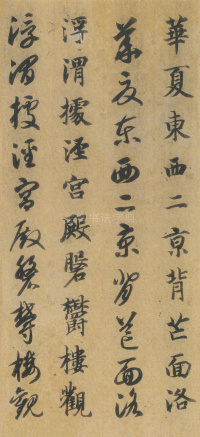 華夏東西二亰背芒面洛
華夏東西二京背芒面洛
浮渭據涇宮殿磐欝樓觀
浮渭據涇宮殿磐欝樓觀